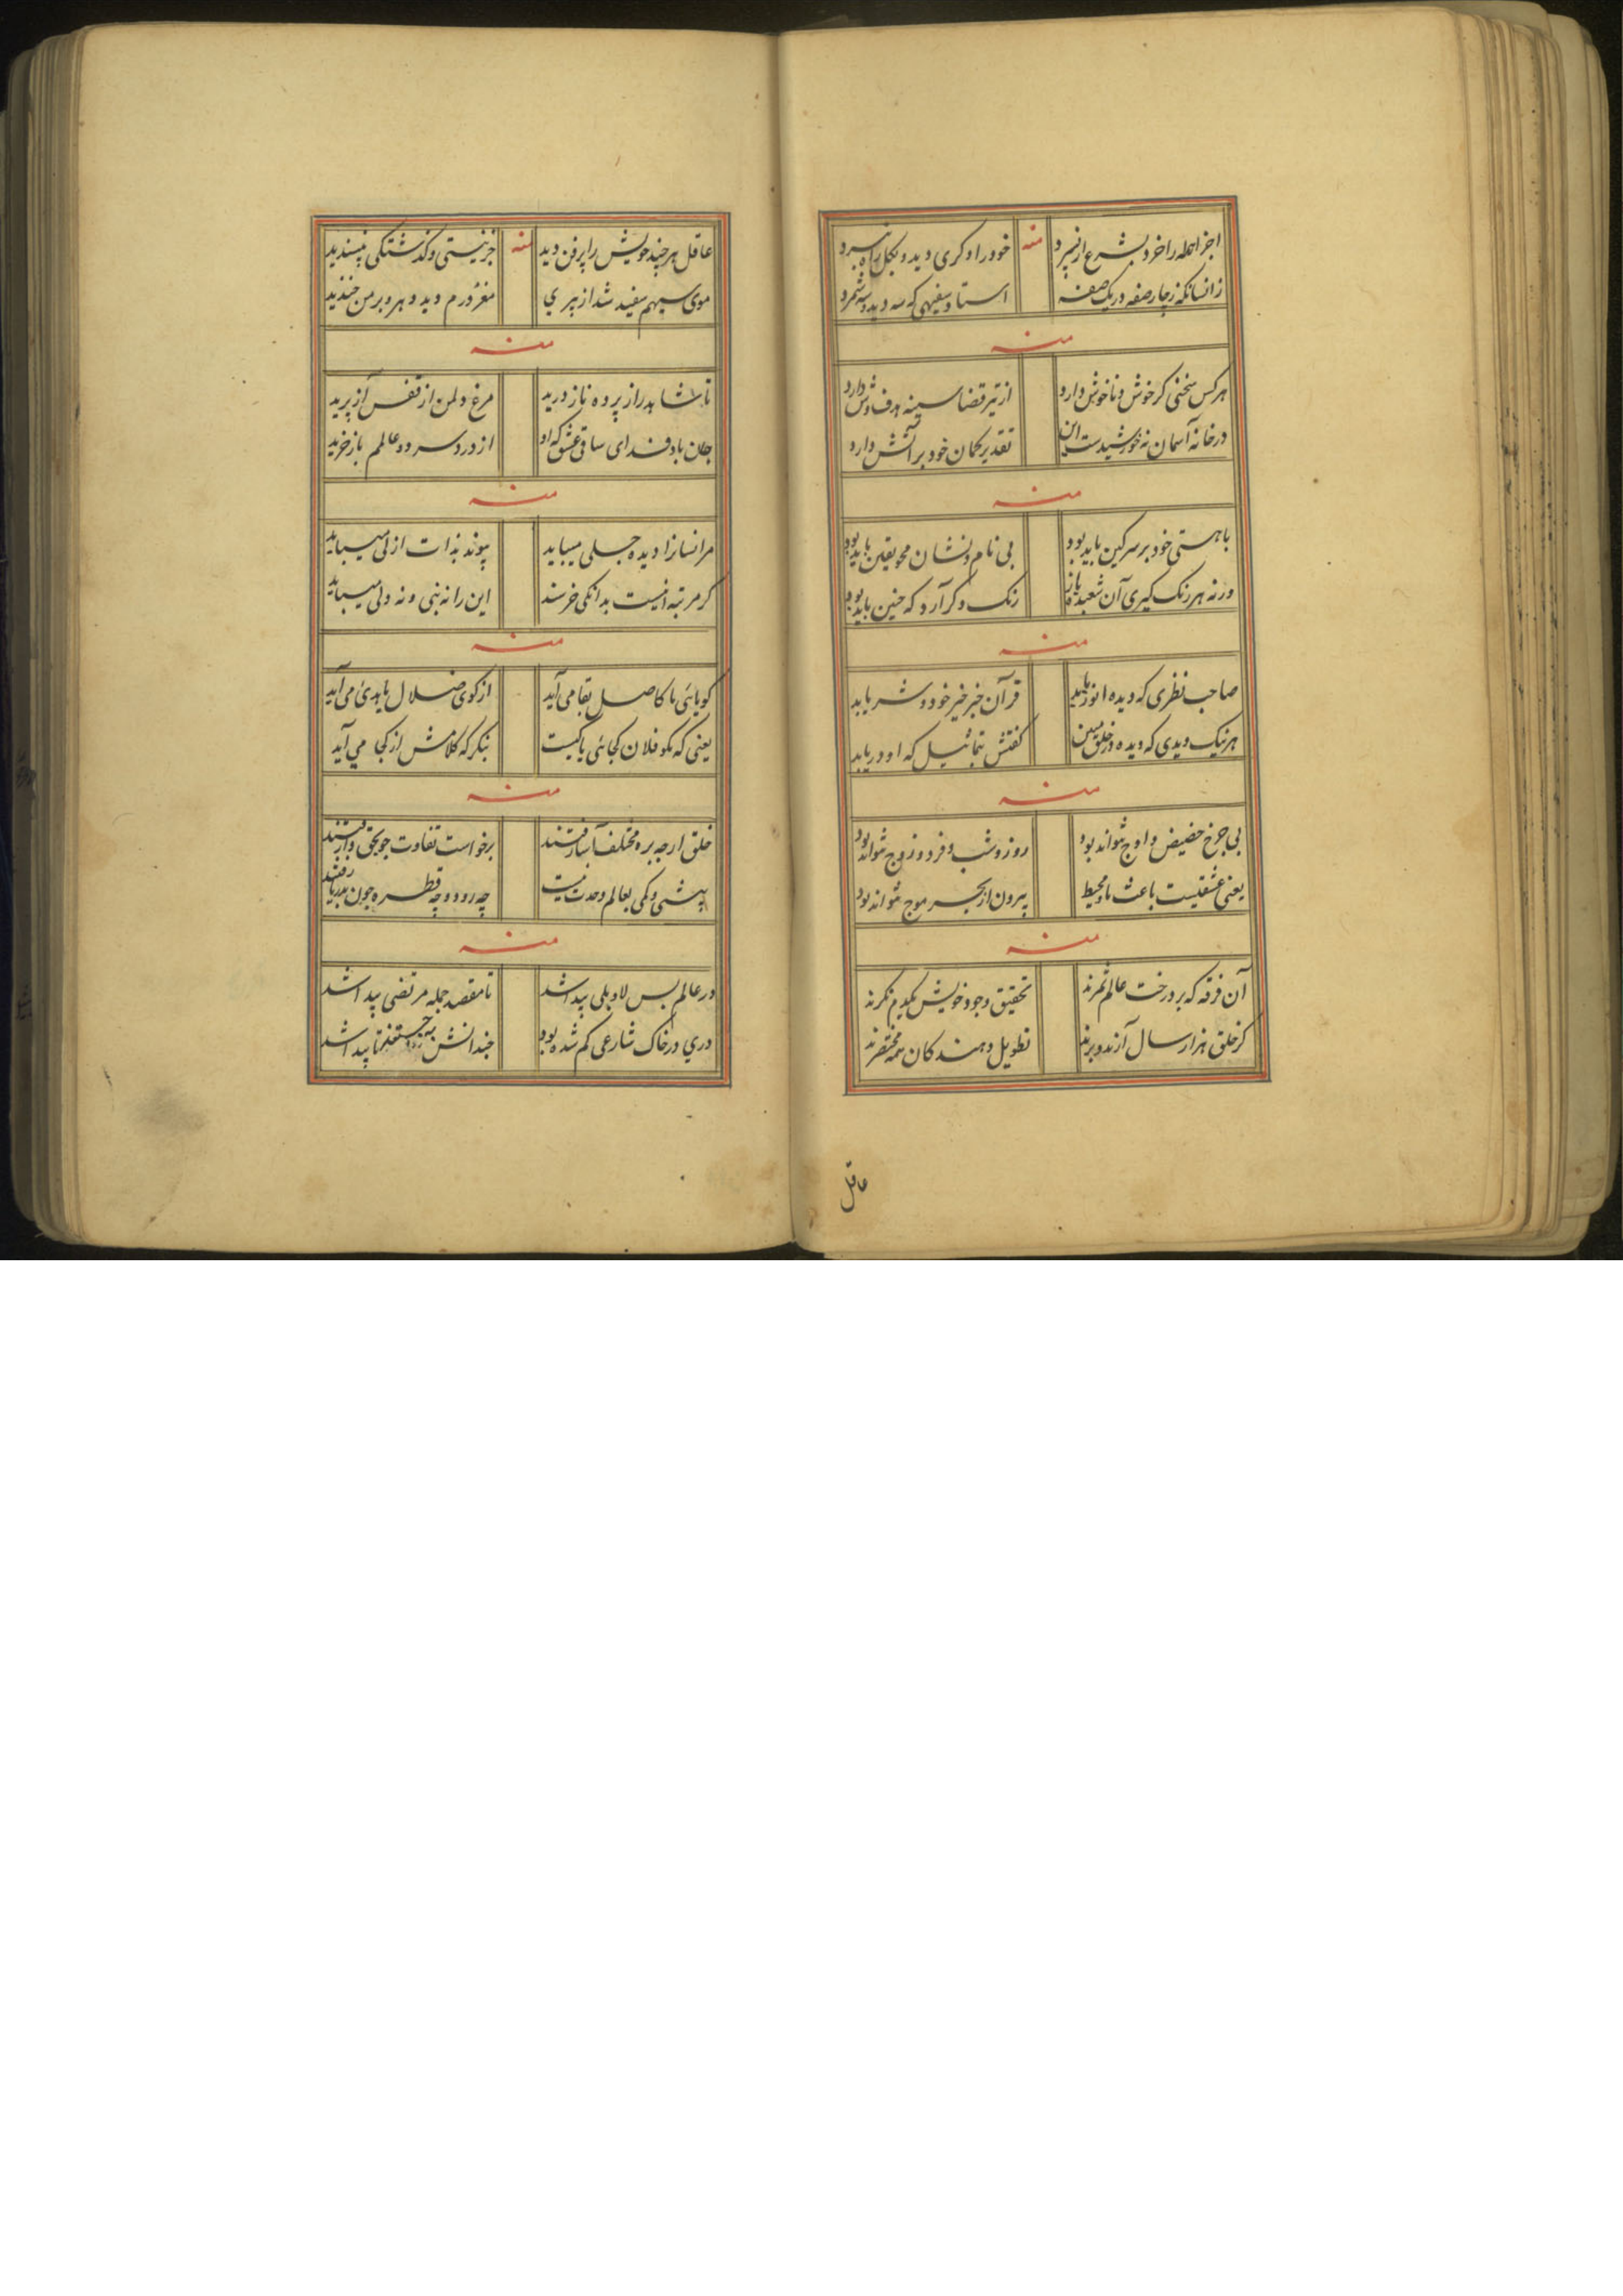 اجزا جمله را خرد بشرع ار نسپرد منه خود را دگری دید و بکل راه نبرد
زانسانکه زچار صفه در یک صفه استاد سفیهی که سه دید و سه شمرد
منه
هر کس سخنی کر خوش و ناخوش دارد از تیر قضا سینه هدف وش دارد
در خانه آسمان نه خورشیدست این تقدیر کمان خود بر آتش دارد
منه
با هستی خود بر سر کین باید بود بی نام و نشان محو یقین باید بود
ورنه هر رنک گیری آن شعبده باز رنک دکر آرد که چنین باید بود
منه
صاحب نظری که دیده انور یابد قرآن خبر خیر خود و شر یابد
هر نیک و بدی که دیده در خلق مبین کفتش بتماثیل که او دریابد
منه
بی چرخ حضیض و اوج نتواند بود روز و شب و فرد و زوج نتواند بود
یعنی عشقیست باعث ما و محیط بیرون از بحر موج نتواند بود
منه
آن فرقه که بر درخت عالم ثمرند تحقیق وجود خویش یکدم نکرند
کز خلق هزار سال آرند و برند تطویل دهندکان همه مختصرند
عاقل
عاقل هر چند خویش را پر فن دید منه جز نیستی و کذشتکی نپسندید
موی سیهم سفید شد از پیری مغرورم دید و دهر بر من خندید
منه
تا شاهد راز پرده ناز درید مرغ دلمن از قفس آز پرید
جان باد فدای ساقی عشق که او از درد سر دو عالمم باز خرید
منه
مر انسانرا دیده جلی میباید پیوند بذات ازلی میباید
کر مرتبه انیست بدانکی خرسند این را نه نبی و نه ولی میباید
منه
کویائی ما کاصل بقا می آید از کوی ضلال یا هدی می آید
یعنی که مکو فلان کجائی یا کیست بنکر که کلامش از کجا می آید
منه
خلق ارچه بره مختلف آثار رفتند برخواست تفاوت چو بحق وا رفتند
پیشی و کمی بعالم وحدت نیست چه رود و چه قطره چون بدریا رفتند
منه
در عالم بس لا و بلی پیدا شد تا مقصد جمله مرتضی پیدا شد
دری در خاک شارعی کم شده بود چندانش بجستند تا پیدا شد